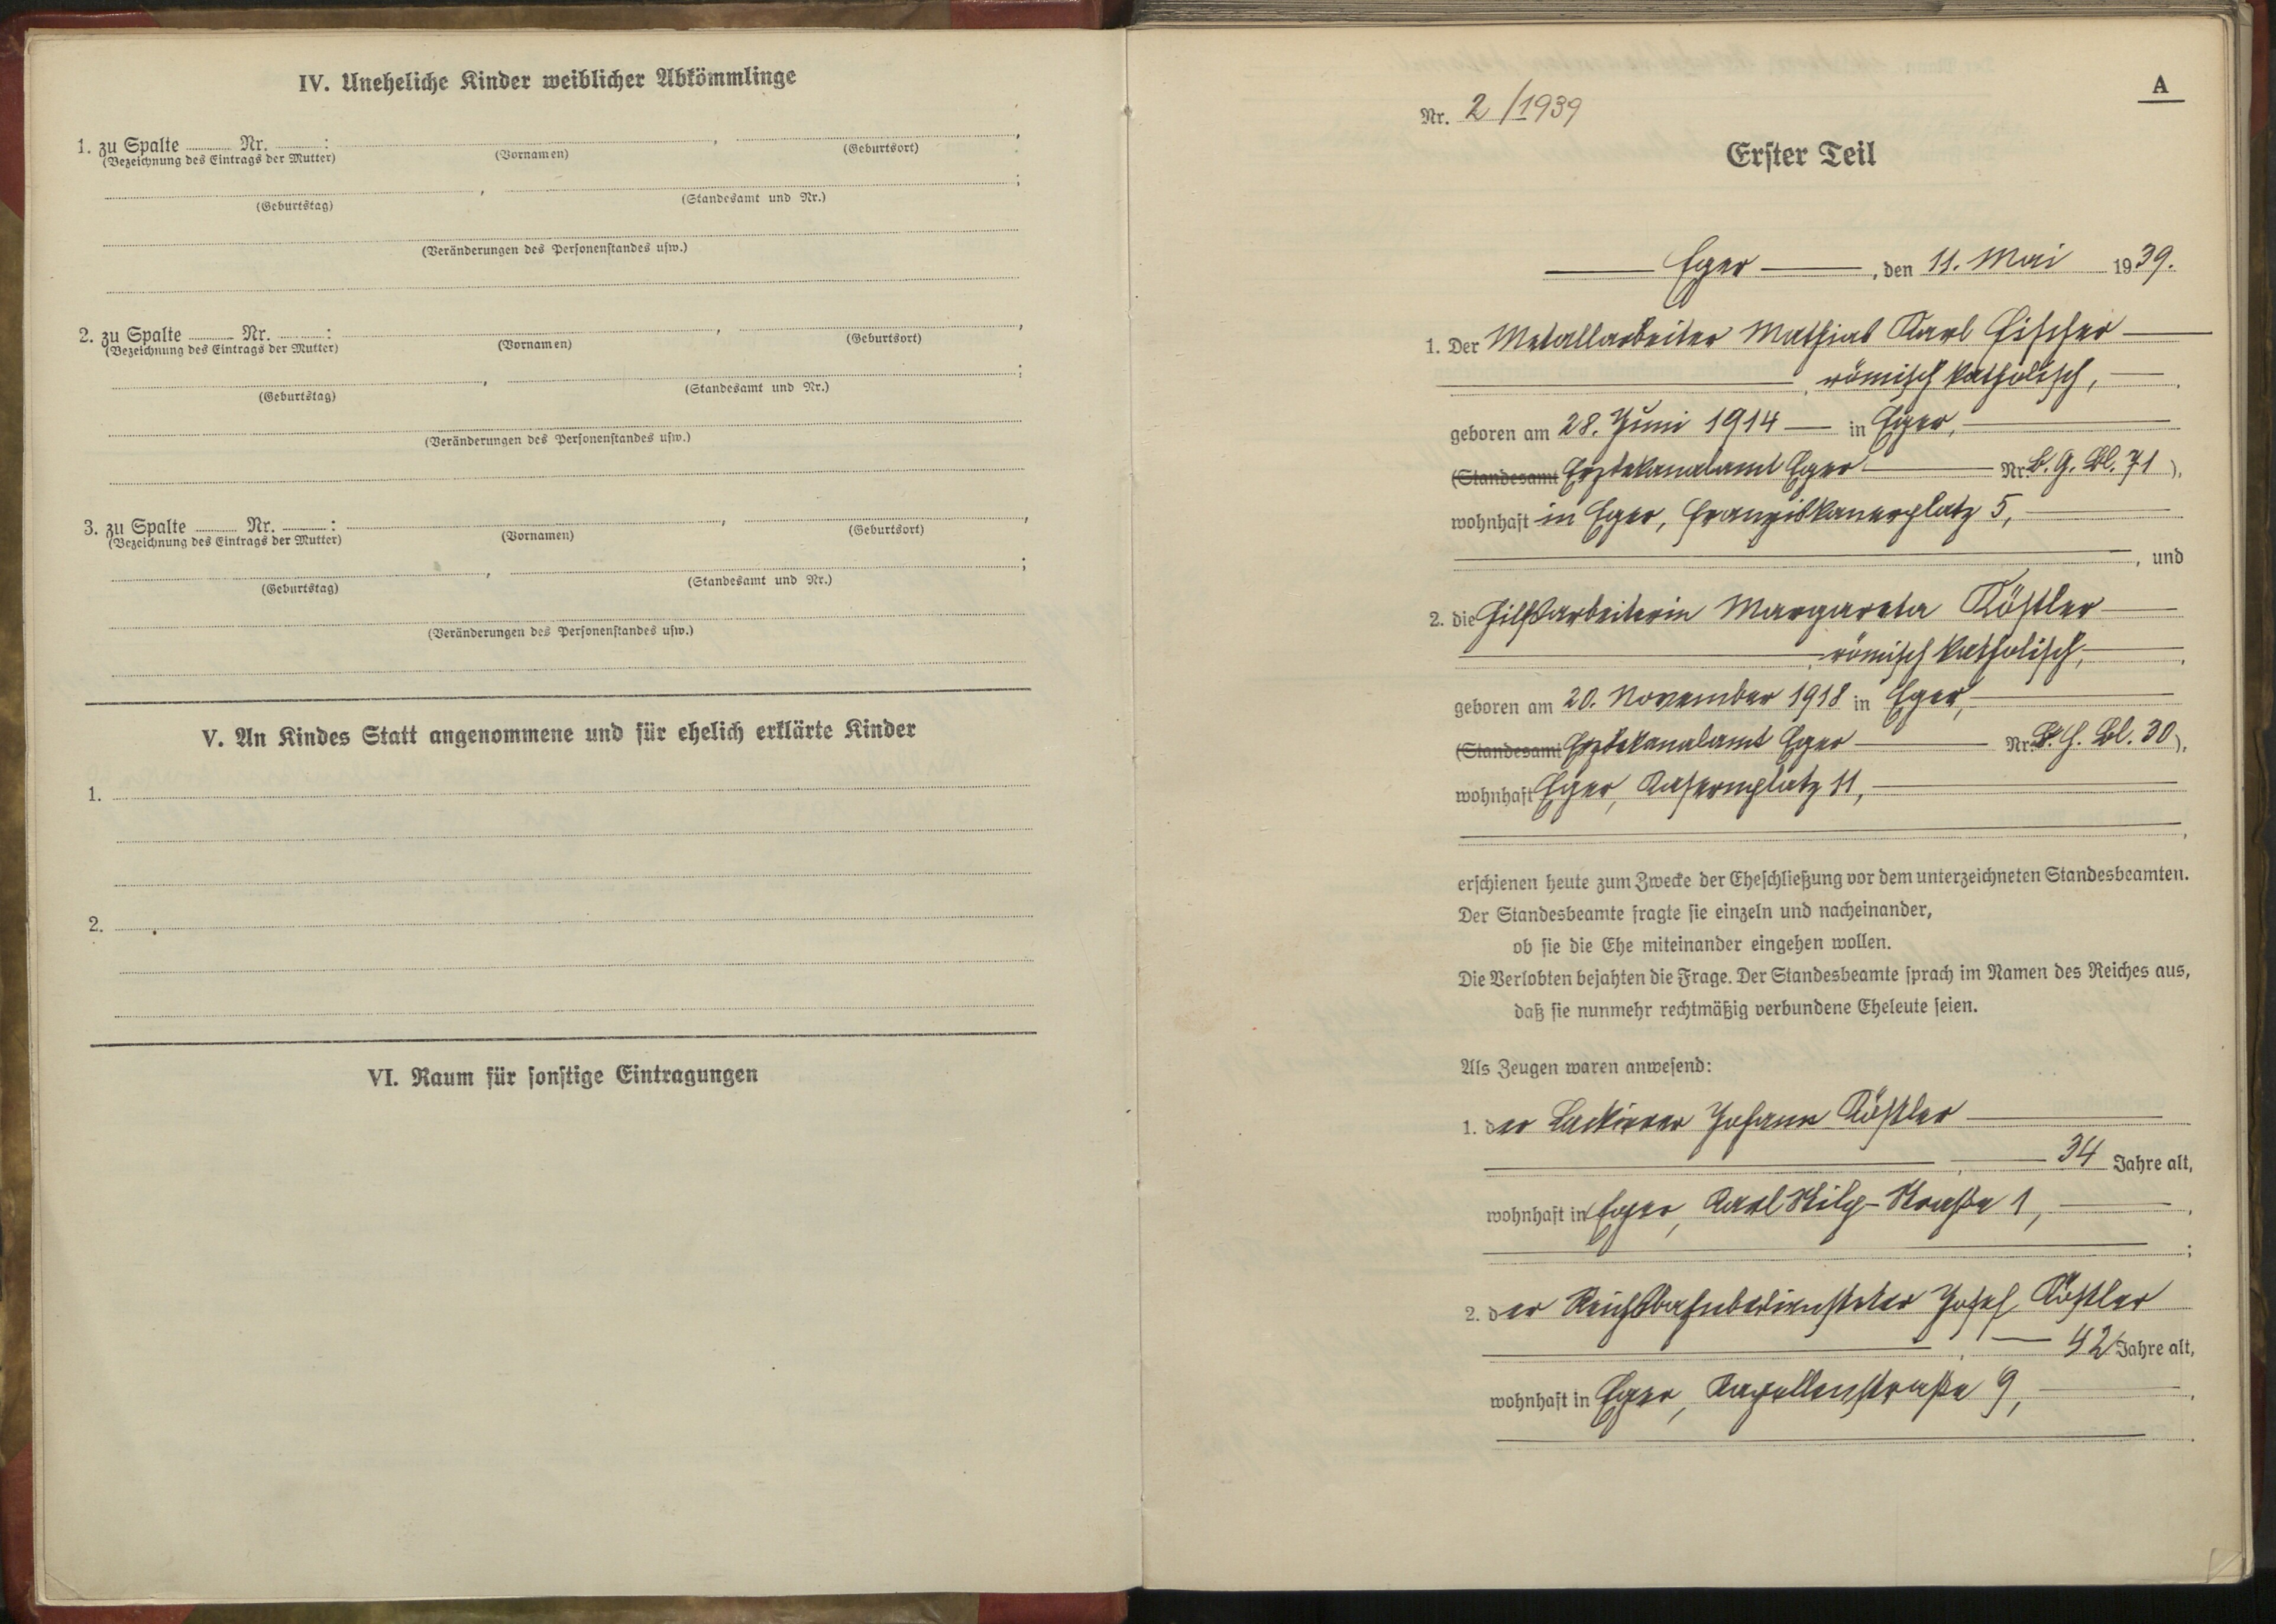 IV. Uneheliche Kinder weiblicher Abkömmlinge
1. zu Spalte ........ Nr. ........:
(Bezeichnung des Eintrags der Mutter) (Vornamen) , (Geburtsort) ,
(Geburtstag) , (Standesamt und Nr.) ;
(Veränderungen des Personenstandes usw.)
2. zu Spalte ........ Nr. ........:
(Bezeichnung des Eintrags der Mutter) (Vornamen) , (Geburtsort) ,
(Geburtstag) , (Standesamt und Nr.) ;
(Veränderungen des Personenstandes usw.)
3. zu Spalte ........ Nr. ........:
(Bezeichnung des Eintrags der Mutter) (Vornamen) , (Geburtsort) ,
(Geburtstag) , (Standesamt und Nr.) ;
(Veränderungen des Personenstandes usw.)
V. An Kindes Statt angenommene und für ehelich erklärte Kinder
1.
2.
VI. Raum für sonstige Eintragungen
A
Nr. 2/1939
Erster Teil
Eger, den 11. Mai 1939.
1. Der Metallarbeiter Mathias Karl Fischer
, römisch katholisch,
geboren am 28. Juni 1914 in Eger,
(Standesamt Erzdekanalamt Eger Nr. b. G. Bl. 71),
wohnhaft in Eger, Franziskanerplatz 5,
, und
2. die Hilfsarbeiterin Margareta Köstler
, römisch katholisch,
geboren am 20. November 1918 in Eger,
(Standesamt Erzdekanalamt Eger Nr. Bl. 30),
wohnhaft Eger, Kasernplatz 11,
erschienen heute zum Zwecke der Eheschließung vor dem unterzeichneten Standesbeamten.
Der Standesbeamte fragte sie einzeln und nacheinander,
ob sie die Ehe miteinander eingehen wollen.
Die Verlobten bejahten die Frage. Der Standesbeamte sprach im Namen des Reiches aus,
daß sie nunmehr rechtmäßig verbundene Eheleute seien.
Als Zeugen waren anwesend:
1. der Lackierer Johann Köstler
, 34 Jahre alt,
wohnhaft in Eger, Karl Straße 1,
;
2. der Reichsbahnbediensteter Josef Köstler
, 42 Jahre alt,
wohnhaft in Eger, Kapellenstraße 9,